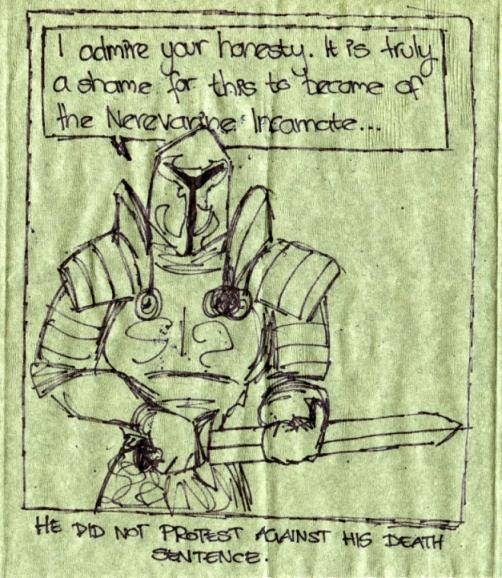 I admire your honesty. It is truly
a shame for this to become of
the Nerevarine Incarnate...
HE DID NOT PROTEST AGAINST HIS DEATH
SENTENCE.